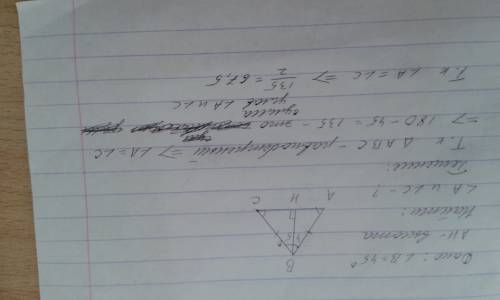 Дано: ∠B=45°
AH - высота
Найти:
∠A и ∠C - ?
B
45°
A
H
C
Решение:
Т.к ΔABC - равнобедренный ⇒ ∠A=∠C
⇒ 180-45=135 - это
сумма
углов ∠A и ∠C
Т.к ∠A=∠C ⇒ 135/2 = 67,5